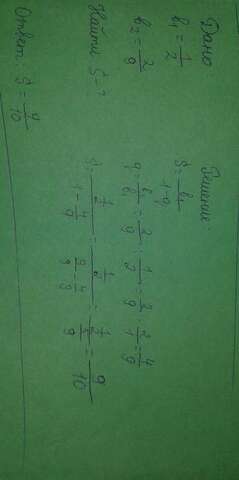 Дано
b₁ = 1/2
b₂ = 2/9
Найти S = ?
Решение
S = b₁/(1-q)
q = b₂/b₁ = 2/9 : 1/2 = 2/9 · 2/1 = 4/9
S = (1/2)/(1 - 4/9) = (1/2)/(9/9 - 4/9) = (1/2)/(5/9) = 9/10
Ответ: S = 9/10